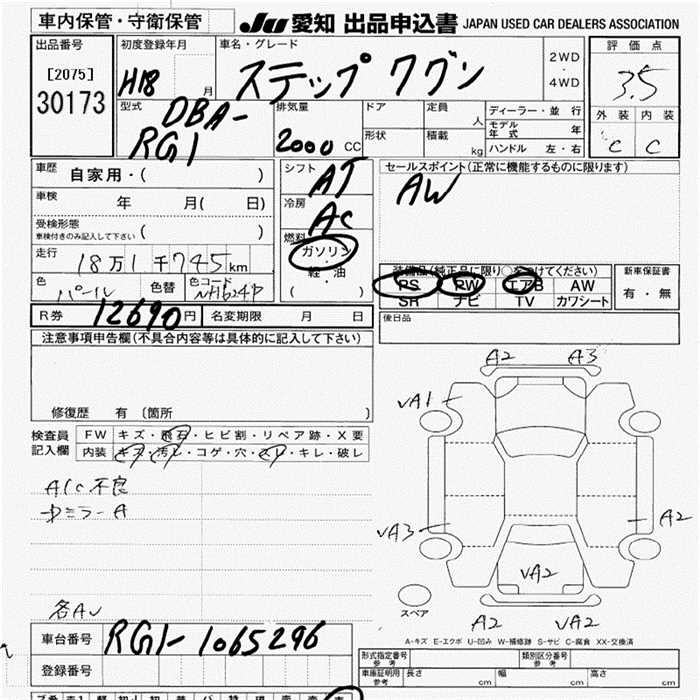 車内保管・守衛保管
JU 愛知 出品申込書 JAPAN USED CAR DEALERS ASSOCIATION
出品番号
[2075]
30173
初度登録年月
H18 月
車名・グレード
ステップワゴン
2WD
・
4WD
評価点
3.5
外装 内装
C C
型式
DBA-
RG1
排気量
2000 CC
ドア
形状
定員 人
積載 kg
ディーラー・並行
モデル年式 年
ハンドル 左・右
車歴
自家用・( )
車検
年 月( 日)
受検形態
車検付きのみ記入して下さい ( )
走行
18万1千745km
色
パール
色替
色コード
NH624P
シフト
AT
冷房
AC
燃料
ガソリン
軽・油
( )
セールスポイント(正常に機能するものに限ります)
AW
装備品(純正品に限り○をつけてください)
PS PW エアB AW
SR ナビ TV カワシート
新車保証書
有・無
R券 12690円 名変期限 月 日
後日品
注意事項申告欄(不具合内容等は具体的に記入して下さい)
修復歴 有 〔箇所 〕
検査員
記入欄
FW キズ・飛石・ヒビ割・リペア跡・X要
内装 キズ・汚レ・コゲ・穴・スレ・キレ・破レ
A/C不良
中ミラーA
各AU
A2 A3
VA1
VA3
A2
VA2
A2 VA2
スペア
A-キズ E-エクボ U-凹み W-補修跡 S-サビ C-腐食 XX-交換済
車台番号 RG1-1065296
登録番号
形式指定番号
参考
類別区分番号
参考
車庫証明用
参考
長さ cm 幅 cm 高さ cm